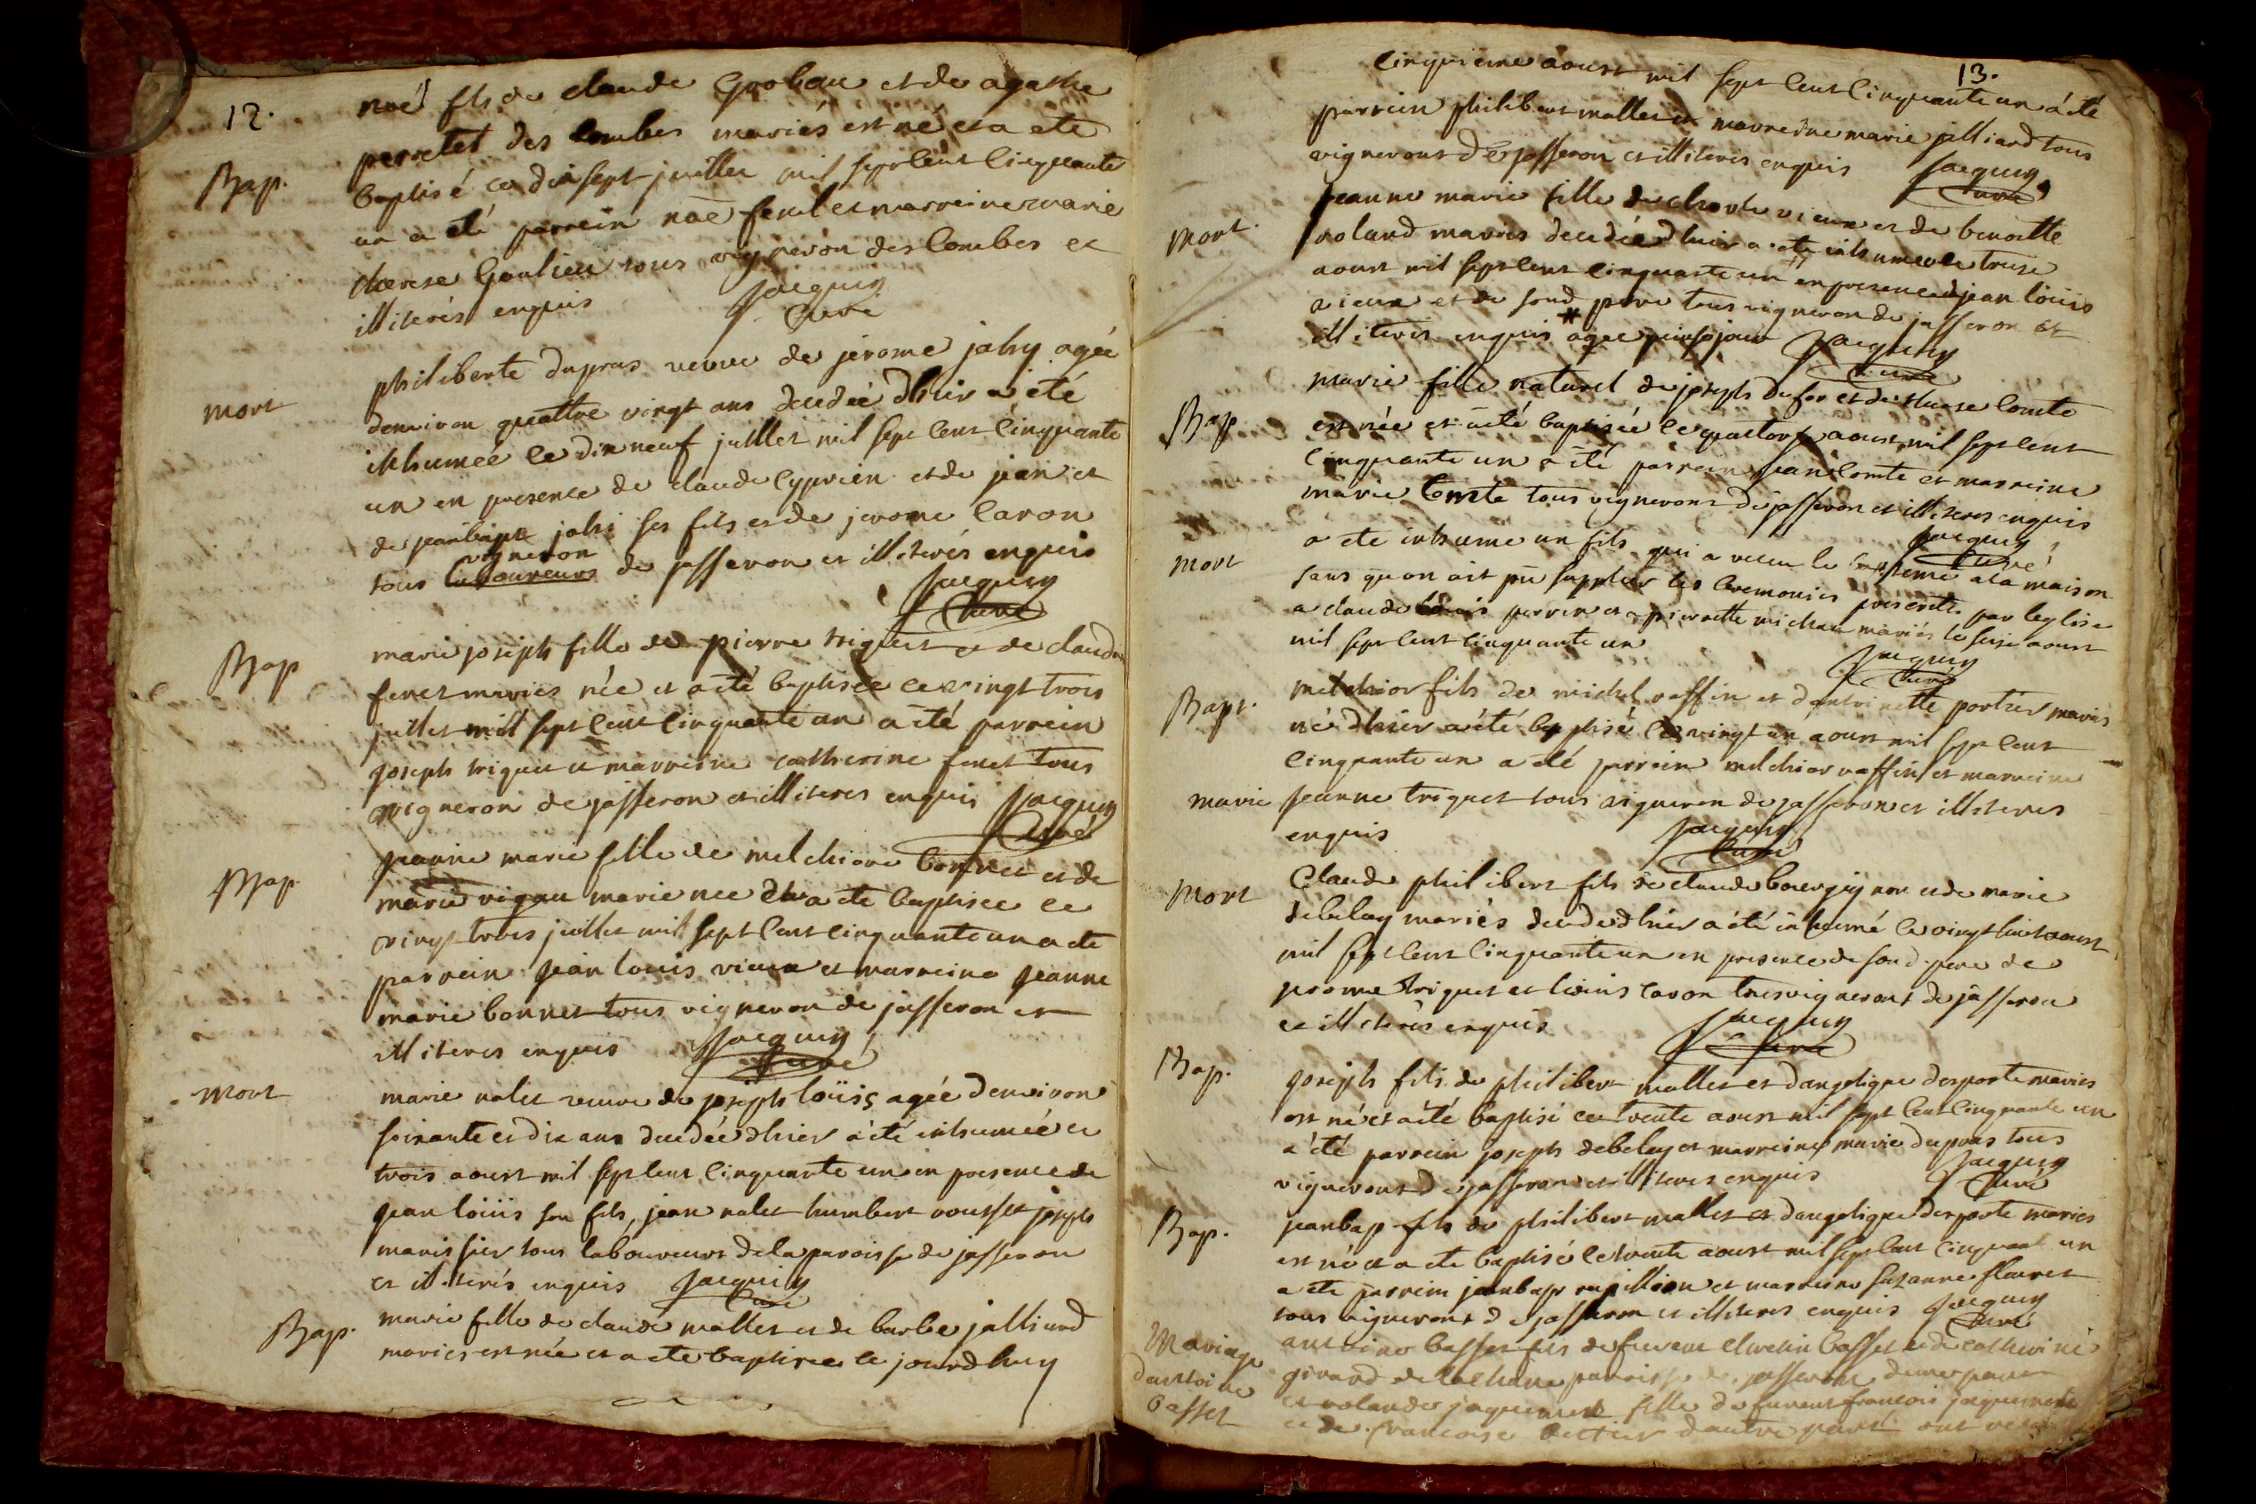 12.
noé fils de claude Grobau et de agathe
perretet des Combes mariés est né et a eté
Bap. baptisé ce dix sept juillet mil sept cent cinquante
un a eté parrein noé feret et marreine marie
therese Gaulieu tous vigneron des Combes et
illiterés enquis Jacquin
Curé
philiberte dupras veuve de jerome jahy agée
mort denviron quattre vingt ans decedée dhier a été
ikhumée ce dix neuf juillet mil sept cent cinquante
un en presence de claude Cyprien et de jean et
de jeanbapt jahi ses fils et de jerome Caron
vigneron
tous laboureurs de jasseron et illiterés enquis
Jacquin
Curé
Bap marie joseph fille de pierre triquet et de claudine
feret mariés née et a été baptisée ce vingt trois
juillet mill sept cent cinquante un a été parrein
joseph triquet et marreine catherine feret tous
vigneron de jasseron et illiteres enquis Jacquin
Curé
Bap jeanne marie fille de melchiore bonnet et de
marie vigau marie née dh a ete baptisee ce
vingt trois juillet mil sept cent cinquante un a ete
parrein jean louis vieux et marreine jeanne
marie bonnet tous vigneron de jasseron et
illiteres enquis Jacquin
Curé
mort marie nalet veuve de joseph loüis agée denviron
soixante et dix ans decedée dhier a été inhumée ce
trois aoust mil sept cent cinquante un en presence de
jean loüis son fils, jean nalet humbert rousset joseph
marissier tous laboureurs de la paroisse de jasseron
et illiterés enquis Jacquin
Curé
Bap. marie fille de claude mallet et de barbe jalliard
mariés est née et a ete baptisee le jourdhuy
13.
cinquieme aoust mil sept cent cinquante un a été
parrein philibert mallet et marreine marie jalliard tous
vignerons de jasseron et illiteres enquis Jacquin
Curé
mort. jeanne marie fille de charle vieux et de benoitte
roland mariés decedée dhier a ete inhumée le treise
aoust mil sept cent cinquante un en presence de jean loüis
vieux et de sond pere tous vigneron de jasseron et
illiteres enquis * agee quinse jour Jacquin
Curé
Bap marie fille naturel de joseph dufor et de therese Comte
est née et a été baptisée le quatorse aoust mil sept cent
cinquante un a été parrein jean Comte et marreine
marie Comte tous vignerons de jasseron et illiteres enquis
Jacquin
Curé
mort a ete inhume un fils qui a receu le bapteme a la maison
sans quon ait pu supplier les ceremonies prescrite par leglise
a claude louis perrin et a pierrette michau mariés le seise aoust
mil sept cent cinquante un Jacquin
Curé
Bapt. melchior fils de michel raffin et dantoinette portier mariés
né dhier a été baptisé le vingt un aoust mil sept cent
cinquante un a été parrein melchior raffin et marreine
marie jeanne triquet tous vigneron de jasseron et illiteres
enquis Jacquin
Curé
mort Claude philibert fils de claude bourgignon et de marie
debelay mariés decede dhier a été inhumé le vingt huit aoust
mil sept cent cinquante un en presence de sond. pere de
jerome triquet et loüis caron tous vignerons de jasseron
et illiterés enquis Jacquin
Curé
Bap. joseph fils de philibert mallet et dangelique desporte mariés
est né et a été baptisé ce trente aoust mil sept cent cinquante un
a été parrein joseph debelay et marreine marie dupras tous
vignerons de jasseron et illiteres enquis Jacquin
Curé
Bap. jeanbap fils de philibert mallet et dangelique desporte mariés
est né et a ete baptisé le trente aoust mil sept cent cinquant un
a ete parrein jeanbap rapillion et marreine suzanne flouret
tous vignerons de jasseron et illiteres enquis Jacquin
Curé
Mariage antoine basset fils de fu basset et de catherine
dantoine girard de paroisse de jasseron dune part
basset et rolande jaquemet fille de furent francois jaquemet
et de francoise dautre part ont